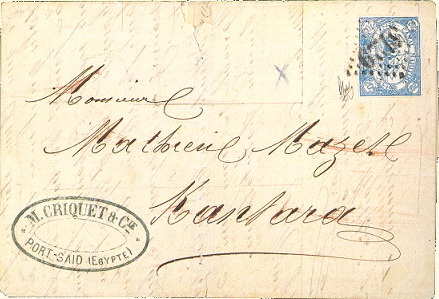 Monsieur
Mathieu Mazet
Kantara
M. CRIQUET & CIE
PORT-SAID (EGYPTE)